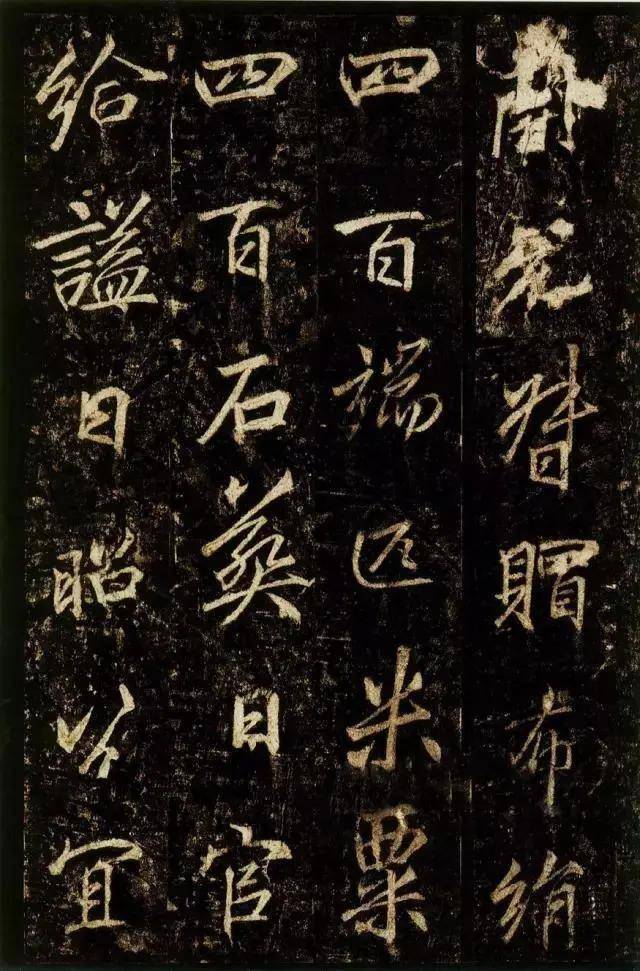 督賵布絹
四百端匹米粟
四百石葬日官
給謚曰昭以宜